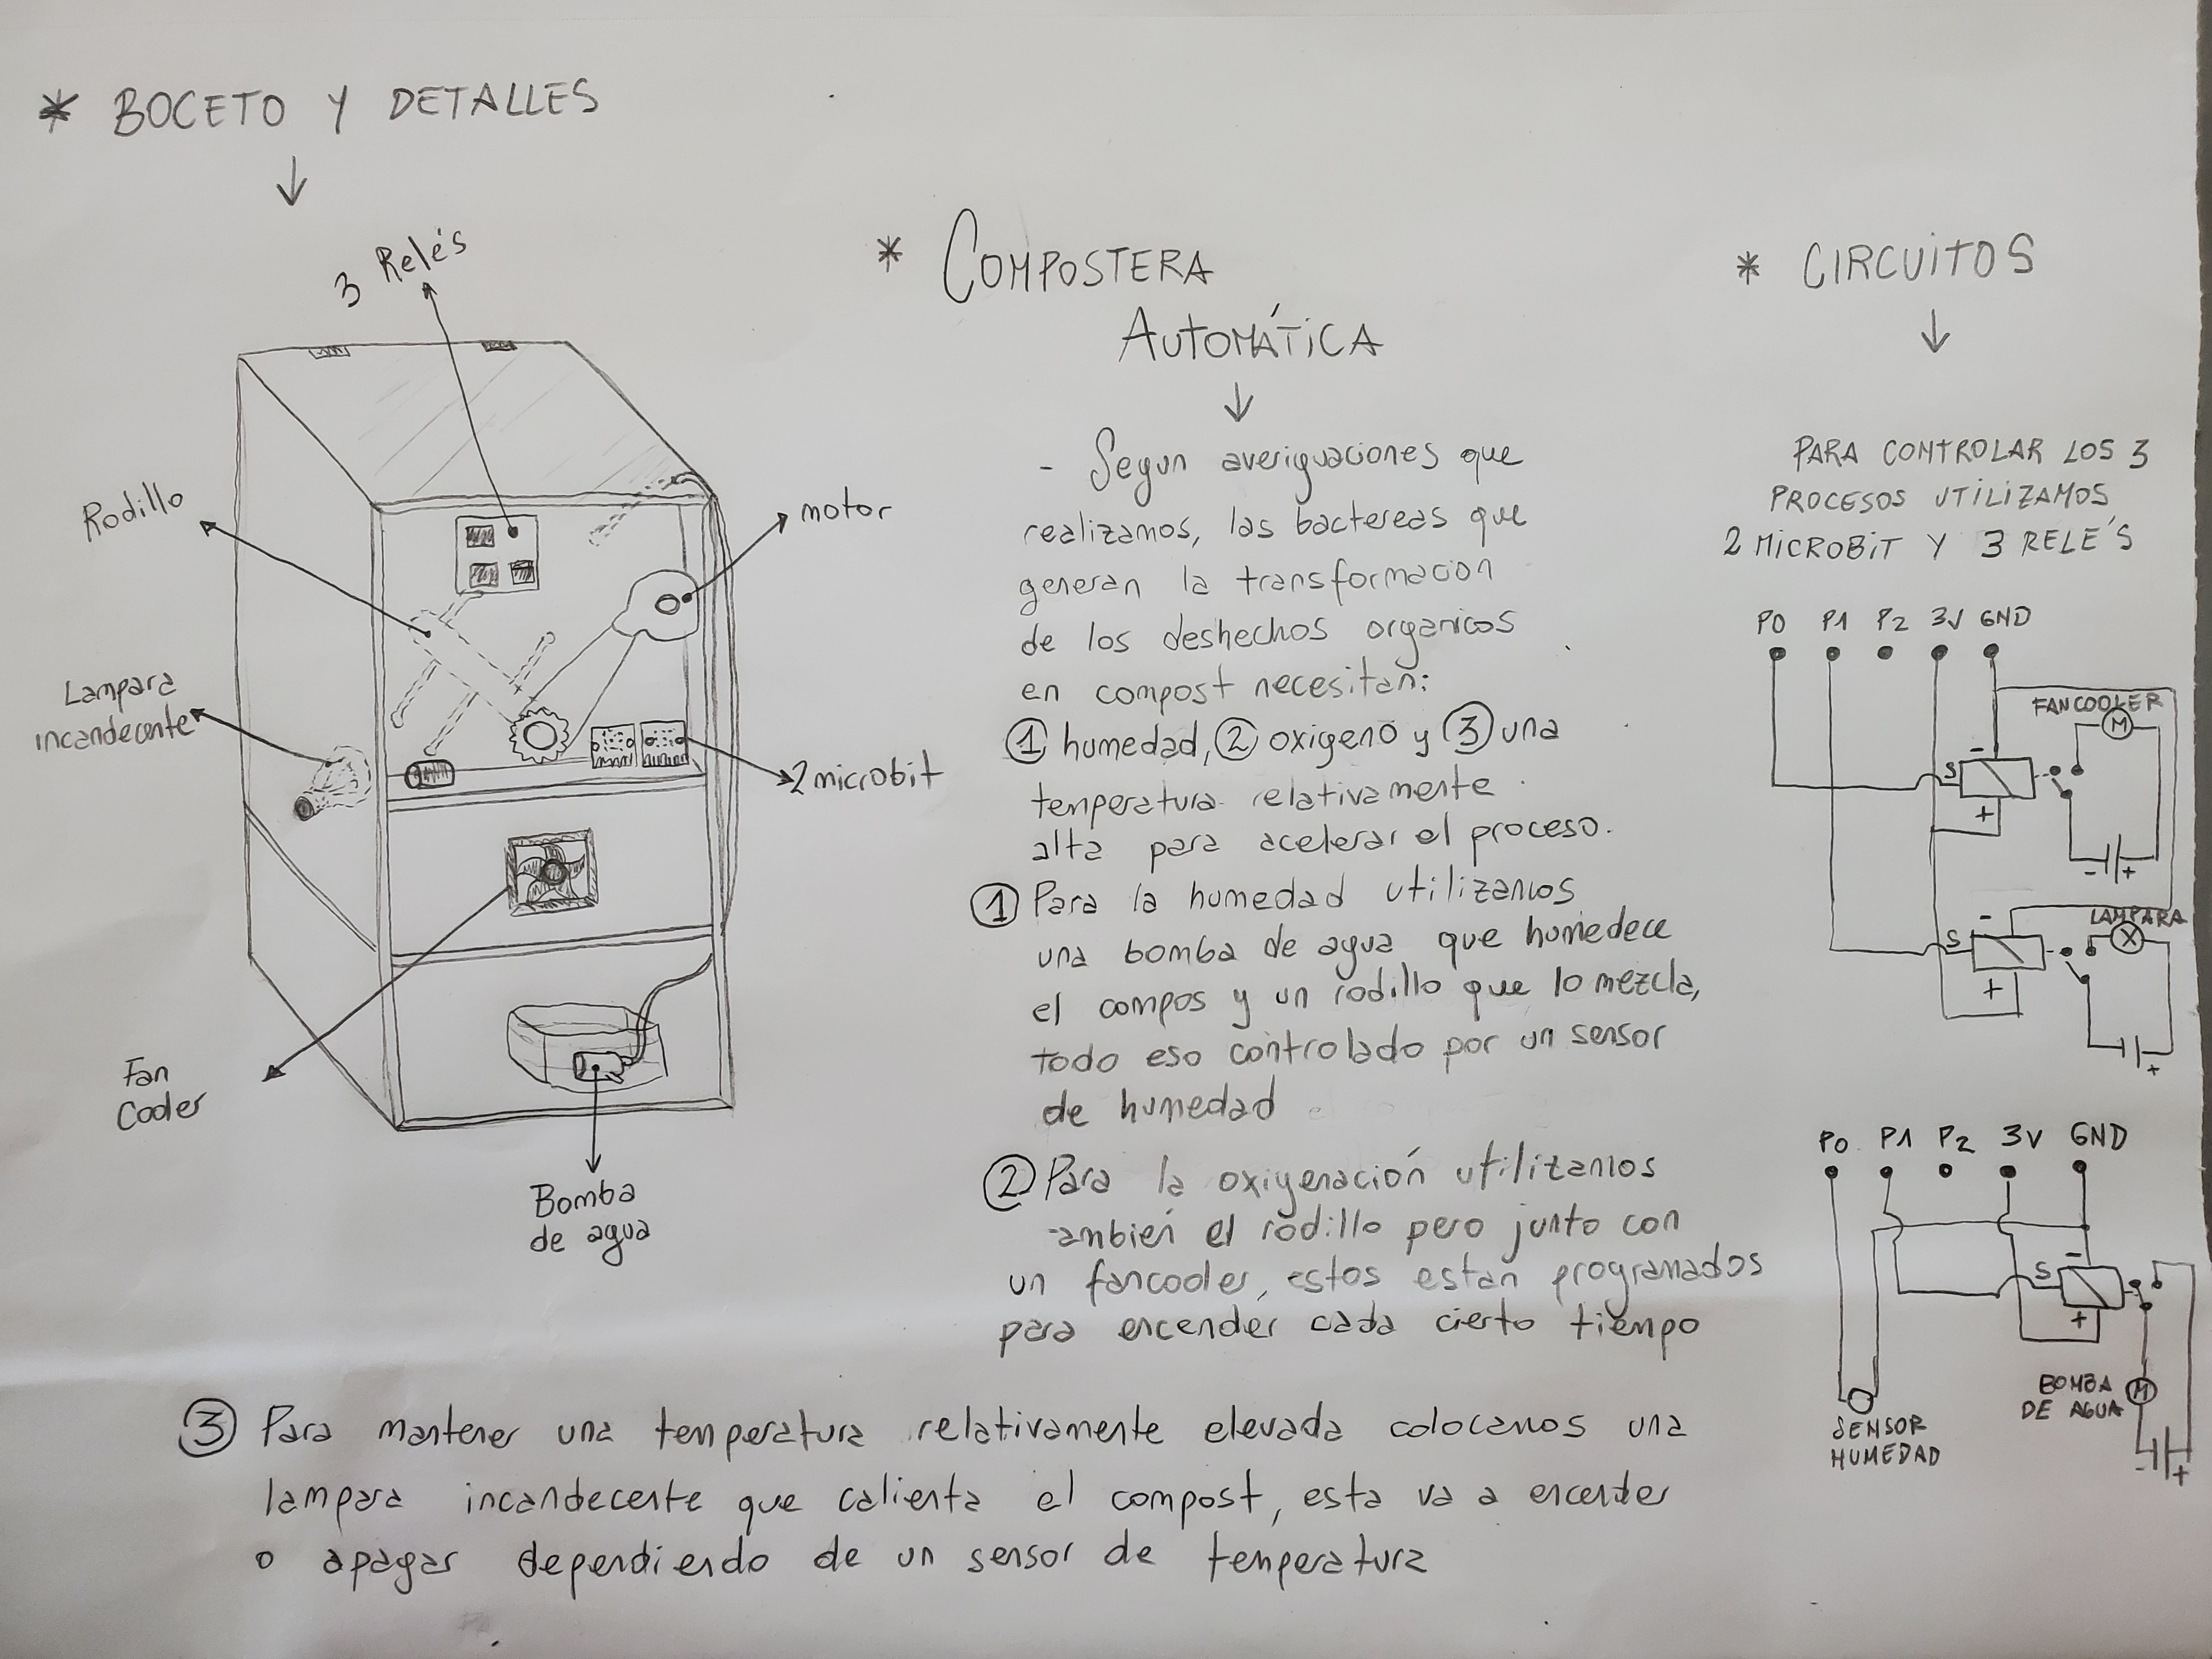 * BOCETO Y DETALLES
↓
3 Relés
Rodillo
motor
Lampara
incandecente
2 microbit
Fan
Cooler
Bomba
de agua
* COMPOSTERA
AUTOMÁTICA
↓
- Segun averiguaciones que
realizamos, las bactereas que
generan la transformacion
de los deshechos organicos
en compost necesitan:
① humedad, ② oxigeno y ③ una
temperatura relativamente
alta para acelerar el proceso.
① Para la humedad utilizamos
una bomba de agua que humedece
el compos y un rodillo que lo mezcla,
todo eso controlado por un sensor
de humedad
② Para la oxigenación utilizamos
ambien el rodillo pero junto con
un fancooler, estos estan programados
para encender cada cierto tiempo
③ Para mantener una temperatura relativamente elevada colocamos una
lampara incandecente que calienta el compost, esta va a encender
o apagar dependiendo de un sensor de temperatura
* CIRCUITOS
↓
PARA CONTROLAR LOS 3
PROCESOS UTILIZAMOS
2 MICROBIT Y 3 RELÉ'S
P0 P1 P2 3V GND
FANCOOLER
M
- S +
- +
LAMPARA
X
- S +
- +
P0 P1 P2 3V GND
- S +
BOMBA
DE AGUA
M
- +
SENSOR
HUMEDAD